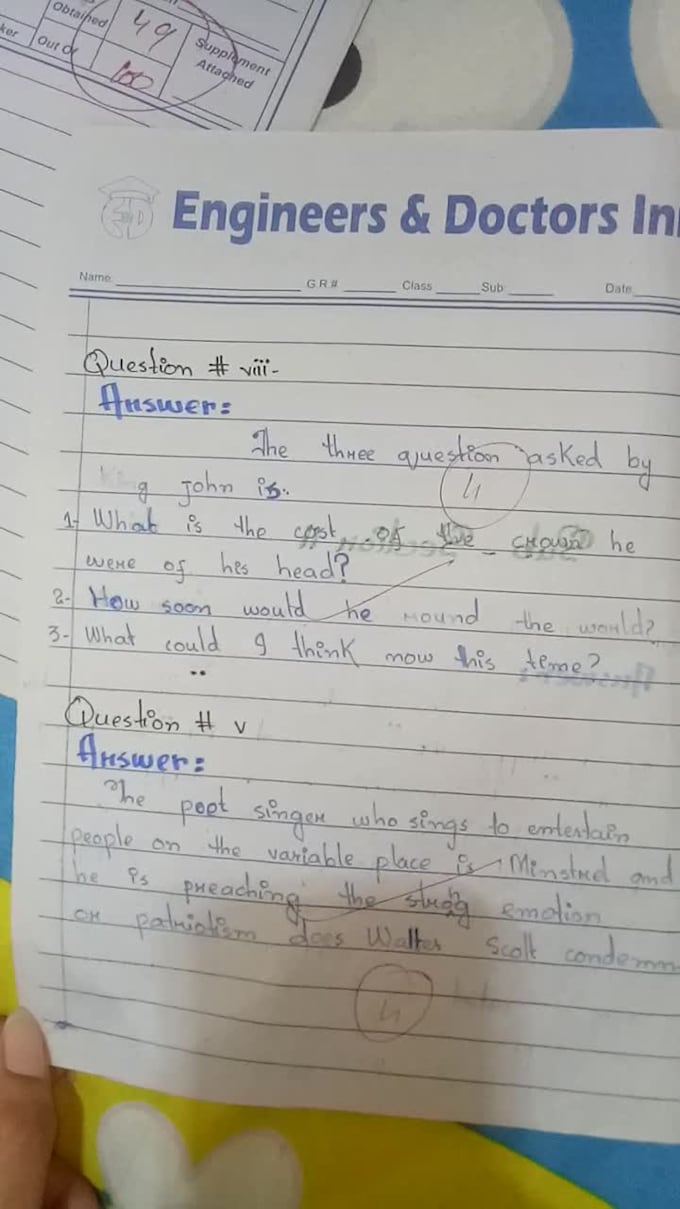 Obtained 49
ker Out of 100
Supplement Attached
Engineers & Doctors In
Name: G.R.# Class Sub: Date:
Question # viii-
Answer:
The three question asked by
g john is.
4
1- What is the cost of the crown he
were of hes head?
2- How soon would he round the would?
3- What could I think now this teme?
Question # v
Answer:
The poet singer who sings to entertain
people on the variable place is Minstrel and
he is preaching the strong emotion
or patriotism does Walter Scott condemn
4